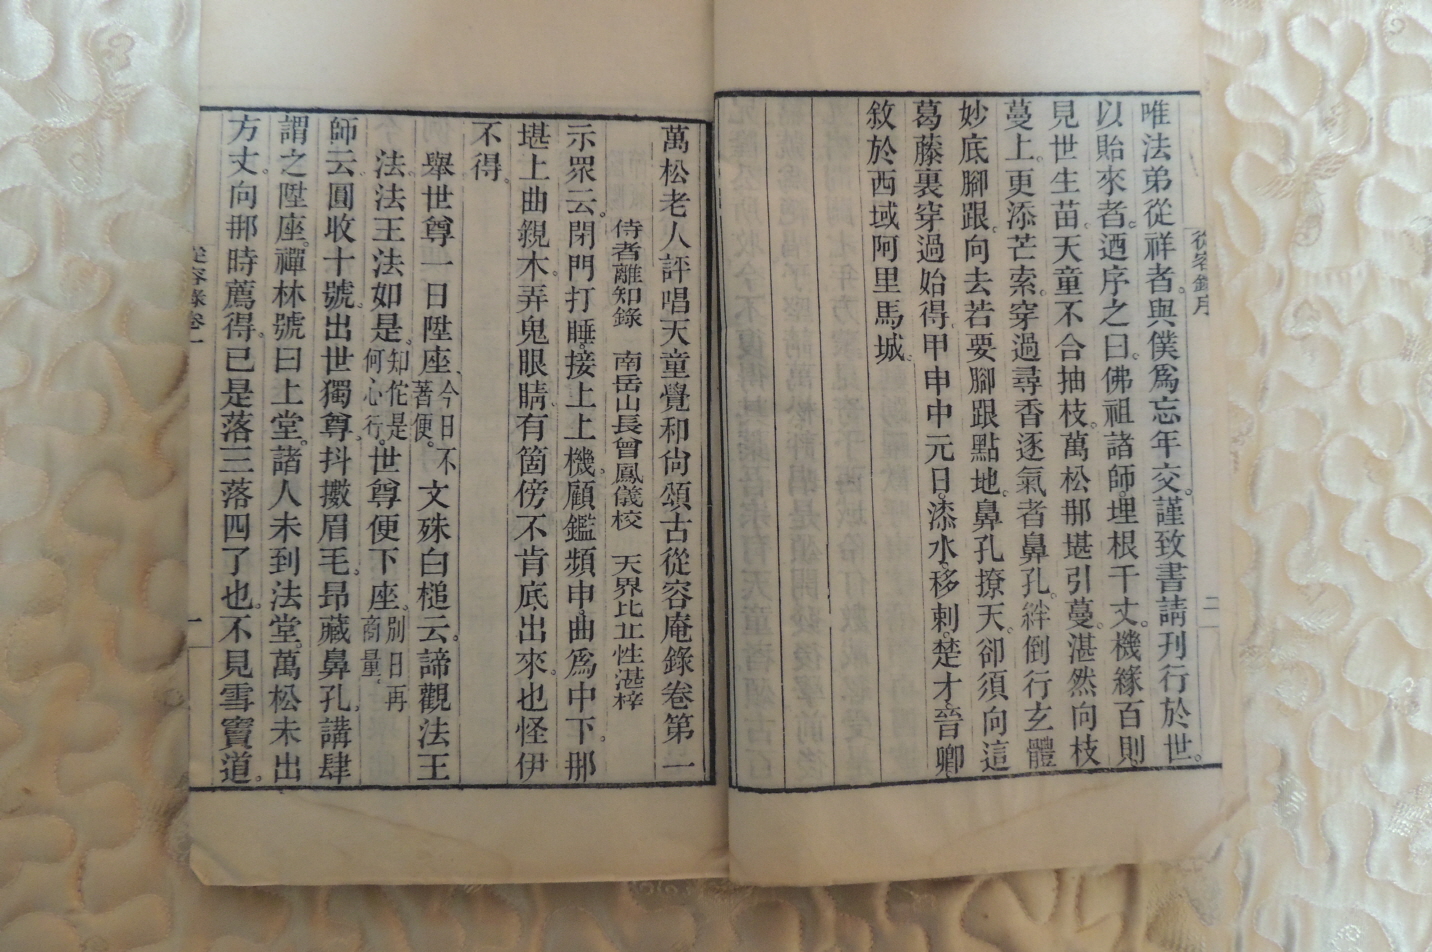 從容錄序
二
唯法弟從祥者。與僕爲忘年交。謹致書請刊行於世。
以貽來者。迺序之曰。佛祖諸師。埋根千丈。機緣百則。
見世生苗。天童不合抽枝。萬松那堪引蔓。湛然向枝
蔓上。更添芒索。穿過尋香逐氣者鼻孔。絆倒行玄體
妙底腳跟。向去若要腳跟點地。鼻孔撩天。卻須向這
葛藤裏穿過始得。甲申中元日。漆水移剌楚才晉卿
敘於西域阿里馬城。
萬松老人評唱天童覺和尙頌古從容庵錄卷第一
侍者離知錄　南岳山長曾鳳儀校　天界比丘性湛梓
示眾云。閉門打睡。接上上機。顧鑑頻申。曲爲中下。那
堪上曲錄木。弄鬼眼睛。有箇傍不肯底出來。也怪伊
不得。
舉世尊一日陞座、今日不著便。文殊白槌云。諦觀法王
法。法王法如是。知佗是何心行。世尊便下座。別日再商量。
師云。圓收十號。出世獨尊。抖擻眉毛。昂藏鼻孔。講肆
謂之陞座。禪林號曰上堂。諸人未到法堂。萬松未出
方丈。向那時薦得。已是落三落四了也。不見雪竇道。
從容錄卷一
一